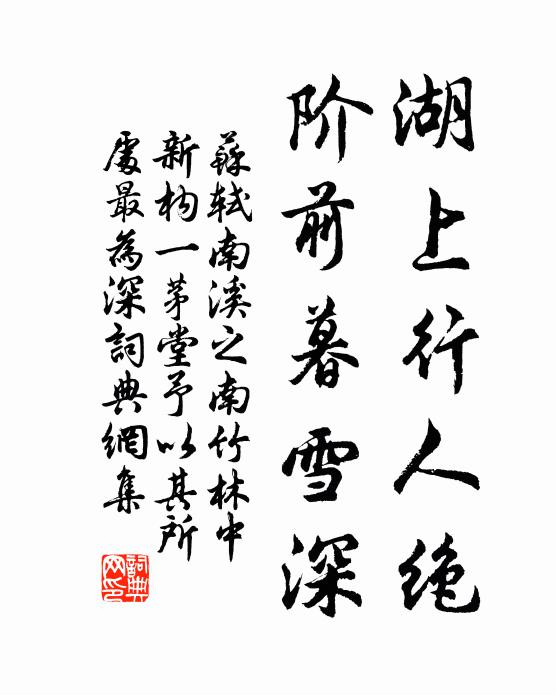 湖上行人绝
阶前暮雪深
蘇軾南溪之南竹林中
新构一茅堂予以其所
處最為深詞典網集
詞典
网印